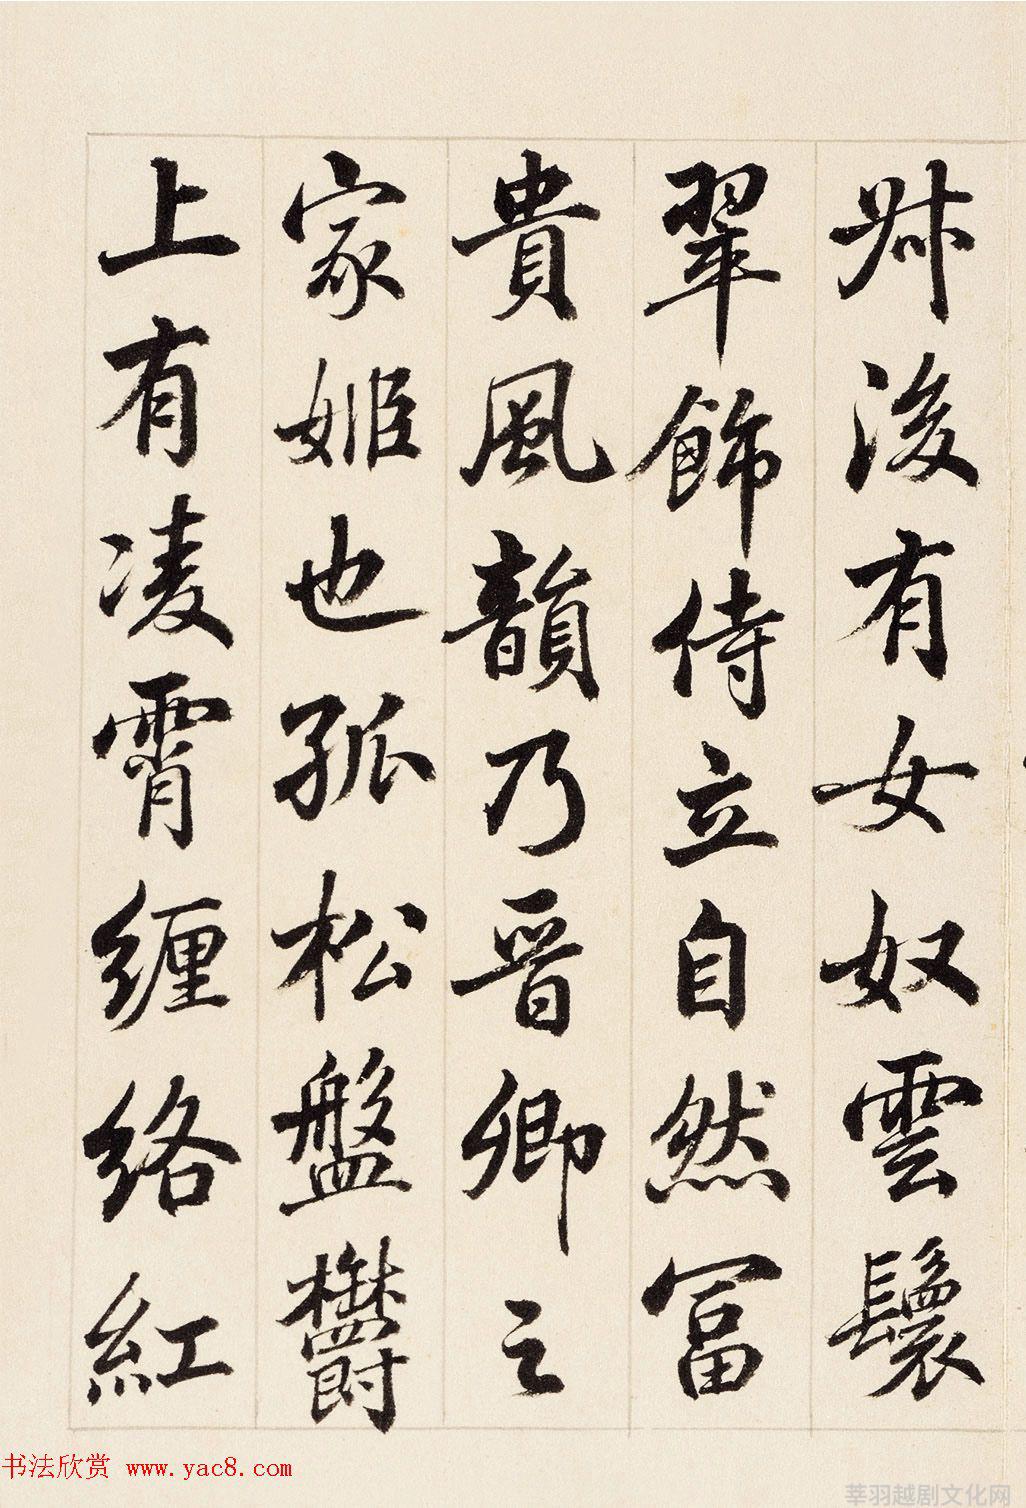 叔後有女奴雲鬟
翠飾侍立自然富
貴風韻乃晋卿之
家姬也孤松盤欝
上有凌霄缠络紅
书法欣赏 www.yac8.com
莘羽越剧文化网